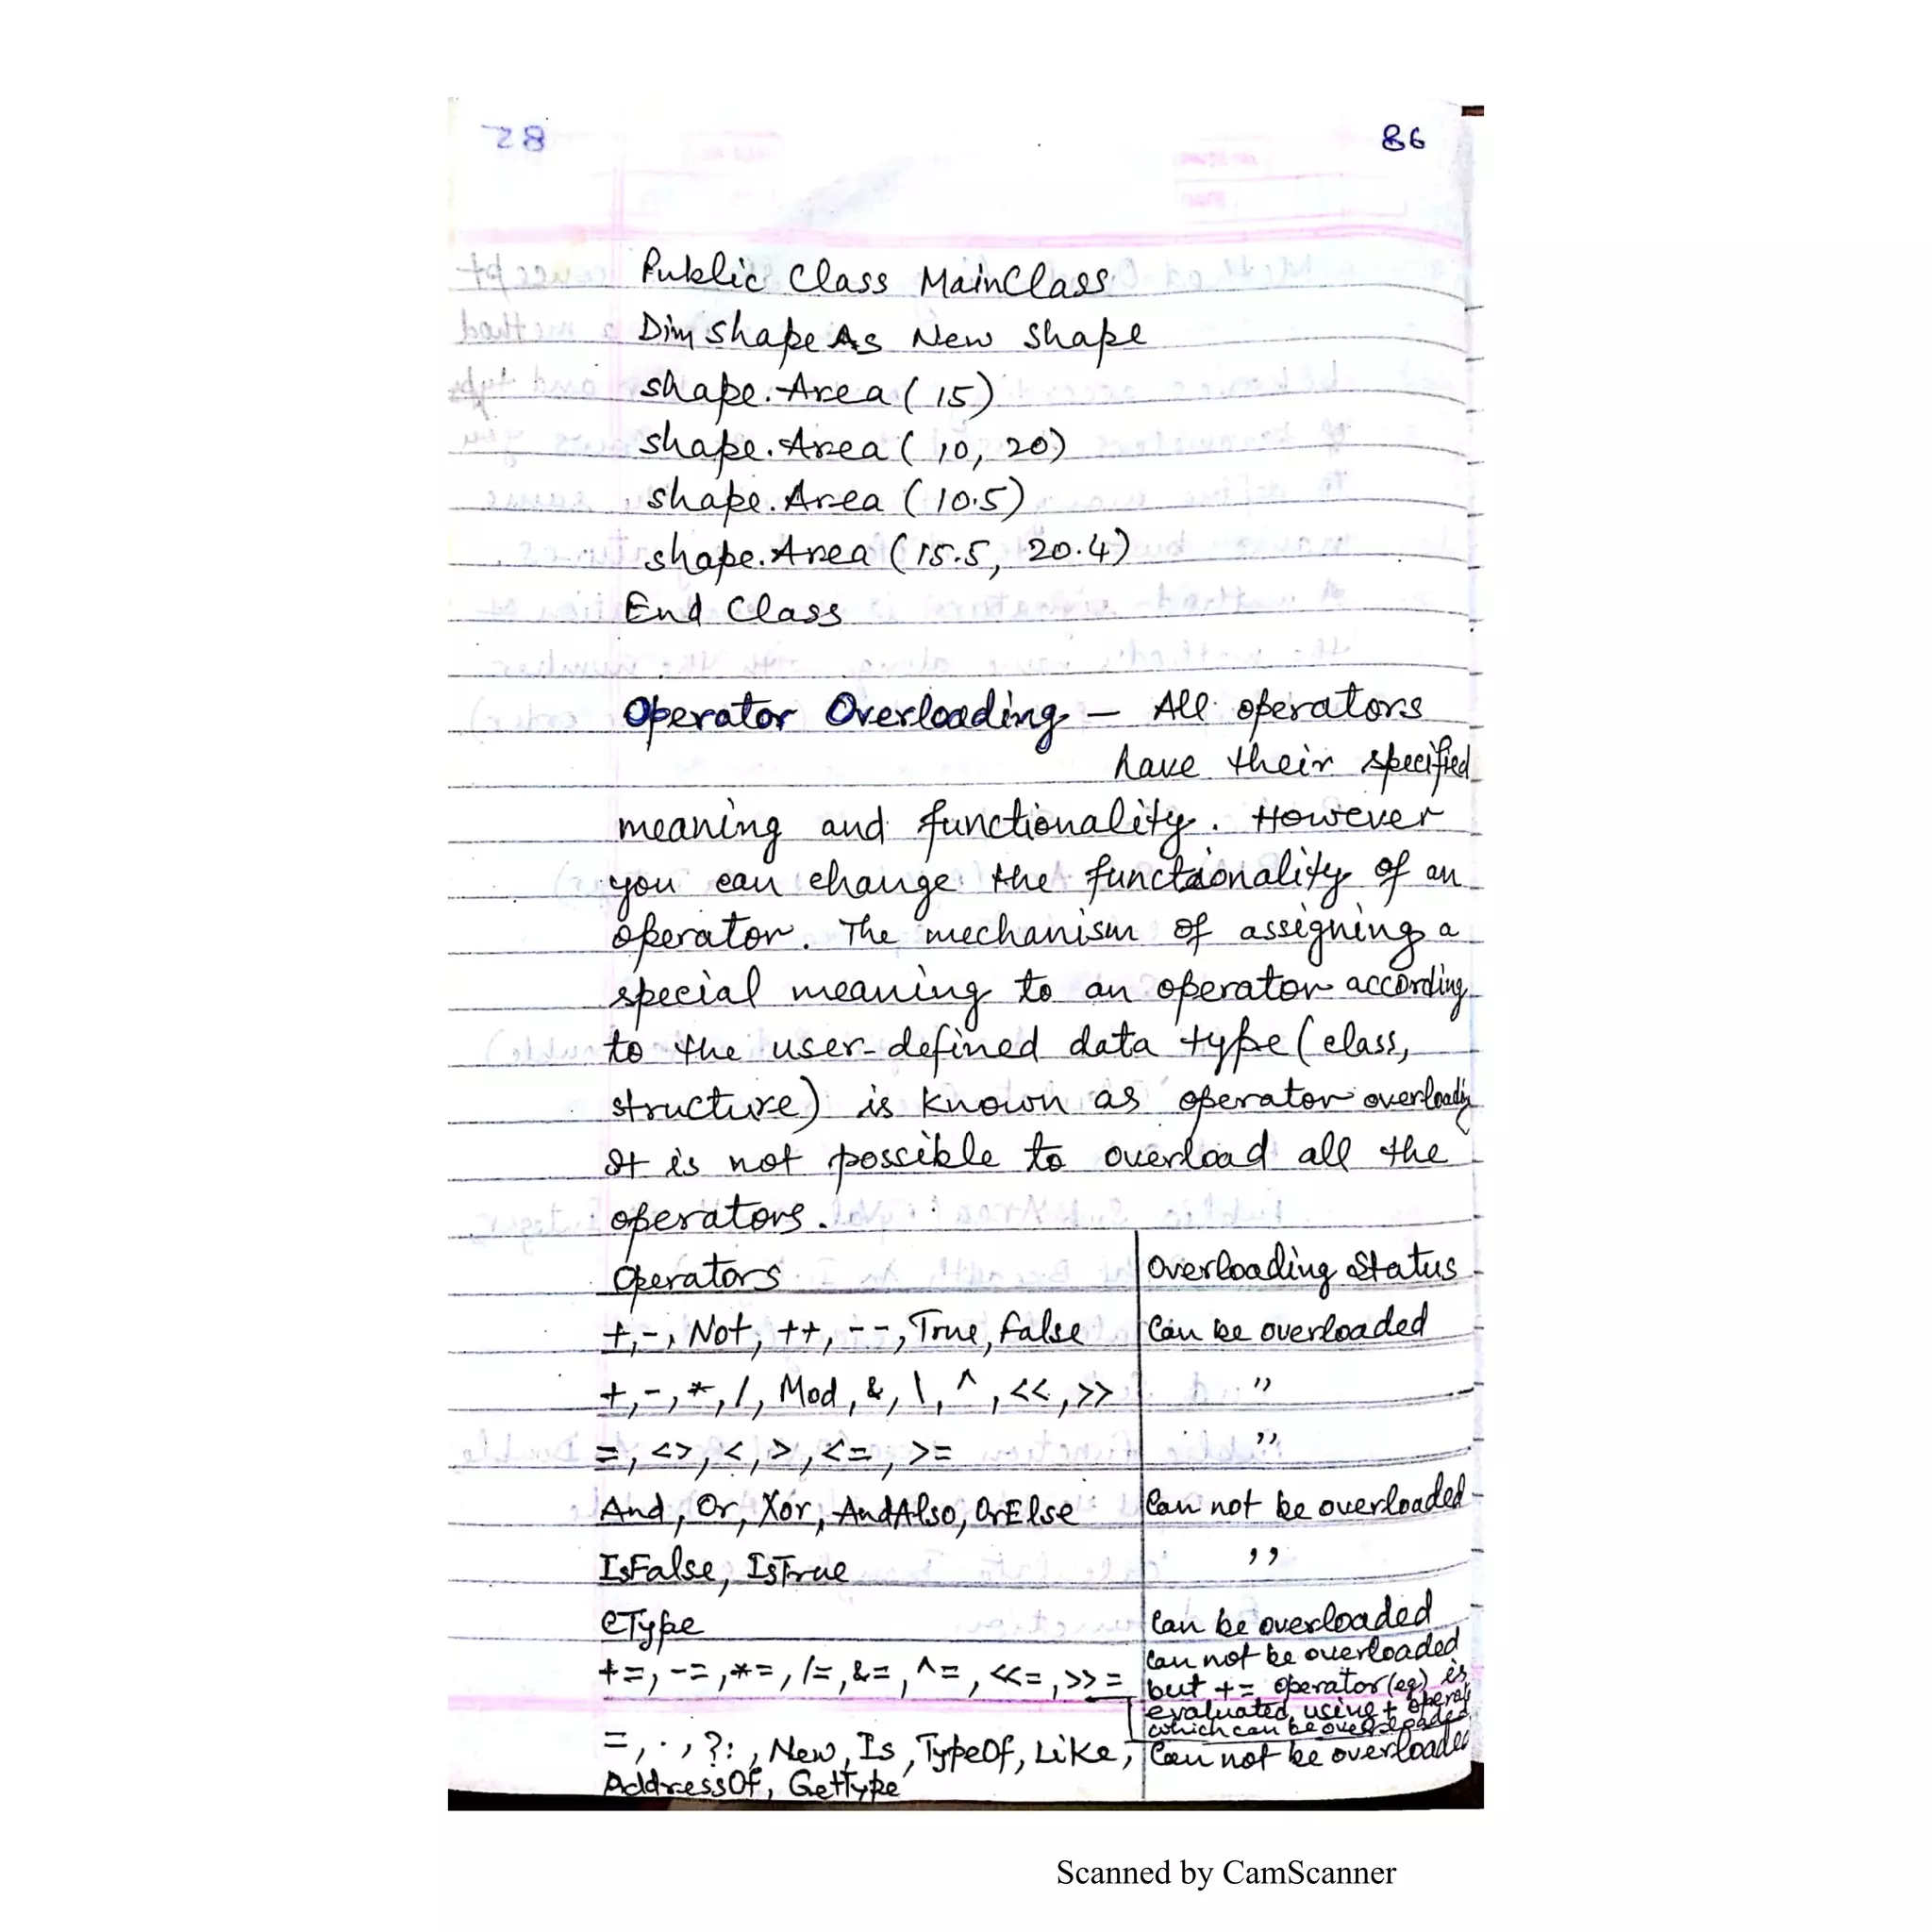 86
Public Class MainClass
Dim shape As New Shape
shape.Area(15)
shape.Area(10, 20)
shape.Area(10.5)
shape.Area(15.5, 20.4)
End Class
Operator Overloading — All operators
have their specified
meaning and functionality. However
you can change the functionality of an
operator. The mechanism of assigning a
special meaning to an operator according
to the user-defined data type (class,
structure) is known as operator overloading
It is not possible to overload all the
operators.
Operators | Overloading Status
+, -, Not, ++, --, True, False | Can be overloaded
+, -, *, /, Mod, &, \, ^, <<, >> | "
=, <>, <, >, <=, >= | "
And, Or, Xor, AndAlso, OrElse | Can not be overloaded
IsFalse, IsTrue | "
CType | Can be overloaded
+=, -=, *=, /=, &=, ^=, <<=, >>= | Can not be overloaded
but += operator (eg) is
evaluated using + operator
which can be overloaded
=, ., ?:, New, Is, TypeOf, Like, | Can not be overloaded
AddressOf, GetType
Scanned by CamScanner